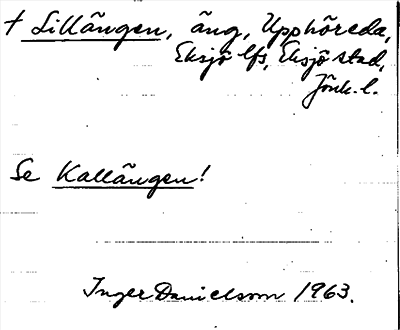 † Lillängen, äng, Upphöreda,
Eksjö lfs, Eksjö stad,
Jönk. l.
Se Kallängen!
Inger Danielsom 1963.